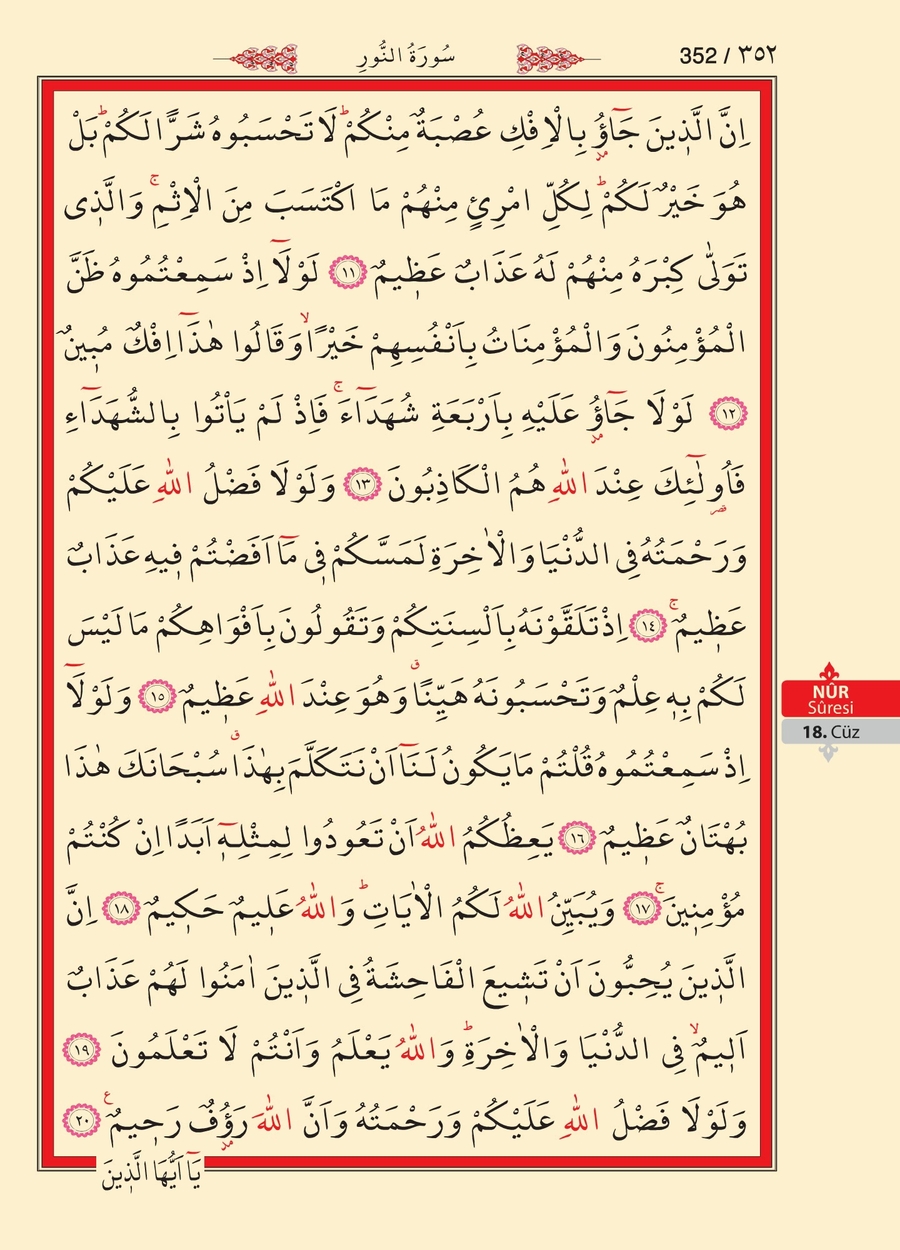 سُورَةُ النُّورِ
352 / ٣٥٢
اِنَّ الَّذ۪ينَ جَٓاؤُ۫ بِالْاِفْكِ عُصْبَةٌ مِنْكُمْۜ لَا تَحْسَبُوهُ شَرًّا لَكُمْۜ بَلْ
هُوَ خَيْرٌ لَكُمْۜ لِكُلِّ امْرِئٍ مِنْهُمْ مَا اكْتَسَبَ مِنَ الْاِثْمِۚ وَالَّذ۪ى
تَوَلّٰى كِبْرَهُ مِنْهُمْ لَهُ عَذَابٌ عَظ۪يمٌ ﴿١١﴾ لَوْلَٓا اِذْ سَمِعْتُمُوهُ ظَنَّ
الْمُؤْمِنُونَ وَالْمُؤْمِنَاتُ بِاَنْفُسِهِمْ خَيْرًاۙ وَقَالُوا هٰذَٓا اِفْكٌ مُب۪ينٌ
﴿١٢﴾ لَوْلَا جَٓاؤُ۫ عَلَيْهِ بِاَرْبَعَةِ شُهَدَٓاءَۚ فَاِذْ لَمْ يَاْتُوا بِالشُّهَدَٓاءِ
فَاُو۬لٰٓئِكَ عِنْدَ اللّٰهِ هُمُ الْكَاذِبُونَ ﴿١٣﴾ وَلَوْلَا فَضْلُ اللّٰهِ عَلَيْكُمْ
وَرَحْمَتُهُ فِى الدُّنْيَا وَالْاٰخِرَةِ لَمَسَّكُمْ ف۪ى مَٓا اَفَضْتُمْ ف۪يهِ عَذَابٌ
عَظ۪يمٌۚ ﴿١٤﴾ اِذْ تَلَقَّوْنَهُ بِاَلْسِنَتِكُمْ وَتَقُولُونَ بِاَفْوَاهِكُمْ مَا لَيْسَ
لَكُمْ بِه۪ عِلْمٌ وَتَحْسَبُونَهُ هَيِّنًاۗ وَهُوَ عِنْدَ اللّٰهِ عَظ۪يمٌ ﴿١٥﴾ وَلَوْلَٓا
اِذْ سَمِعْتُمُوهُ قُلْتُمْ مَا يَكُونُ لَنَٓا اَنْ نَتَكَلَّمَ بِهٰذَاۗ سُبْحَانَكَ هٰذَا
بُهْتَانٌ عَظ۪يمٌ ﴿١٦﴾ يَعِظُكُمُ اللّٰهُ اَنْ تَعُودُوا لِمِثْلِه۪ٓ اَبَدًا اِنْ كُنْتُمْ
مُؤْمِن۪ينَۚ ﴿١٧﴾ وَيُبَيِّنُ اللّٰهُ لَكُمُ الْاٰيَاتِۜ وَاللّٰهُ عَل۪يمٌ حَك۪يمٌ ﴿١٨﴾ اِنَّ
الَّذ۪ينَ يُحِبُّونَ اَنْ تَش۪يعَ الْفَاحِشَةُ فِى الَّذ۪ينَ اٰمَنُوا لَهُمْ عَذَابٌ
اَل۪يمٌۙ فِى الدُّنْيَا وَالْاٰخِرَةِۜ وَاللّٰهُ يَعْلَمُ وَاَنْتُمْ لَا تَعْلَمُونَ ﴿١٩﴾
وَلَوْلَا فَضْلُ اللّٰهِ عَلَيْكُمْ وَرَحْمَتُهُ وَاَنَّ اللّٰهَ رَؤُ۫فٌ رَح۪يمٌ ﴿٢٠﴾
يَٓا اَيُّهَا الَّذ۪ينَ
NÛR
Sûresi
18. Cüz